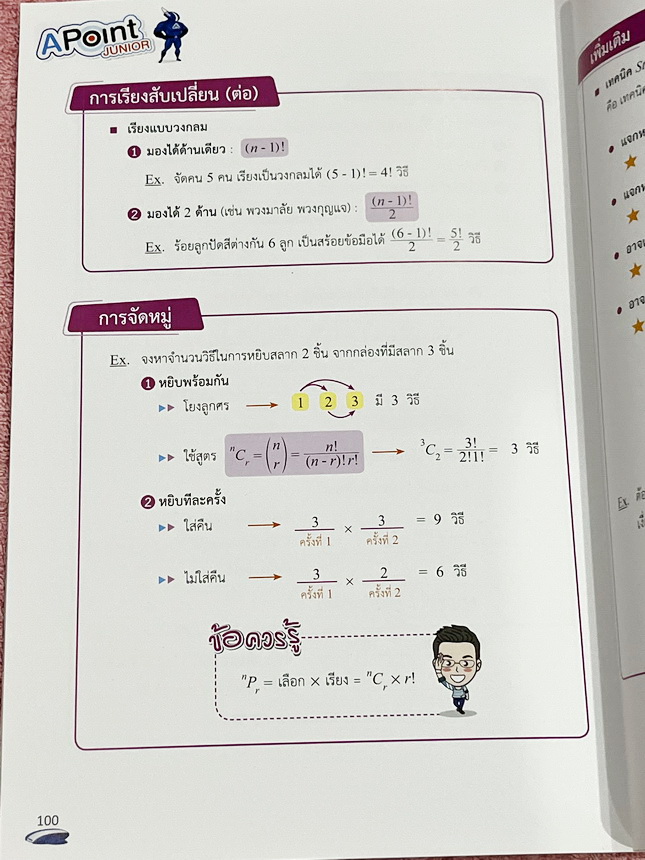 APoint
JUNIOR
การเรียงสับเปลี่ยน (ต่อ)
■ เรียงแบบวงกลม
❶ มองได้ด้านเดียว : (n - 1)!
Ex. จัดคน 5 คน เรียงเป็นวงกลมได้ (5 - 1)! = 4! วิธี
❷ มองได้ 2 ด้าน (เช่น พวงมาลัย พวงกุญแจ) : (n - 1)!/2
Ex. ร้อยลูกปัดสีต่างกัน 6 ลูก เป็นสร้อยข้อมือได้ (6 - 1)!/2 = 5!/2 วิธี
การจัดหมู่
Ex. จงหาจำนวนวิธีในการหยิบสลาก 2 ชิ้น จากกล่องที่มีสลาก 3 ชิ้น
❶ หยิบพร้อมกัน
▶▶ โยงลูกศร → 1 2 3 มี 3 วิธี
▶▶ ใช้สูตร ⁿCᵣ = (n r) = n!/(n - r)! r! → ³C₂ = 3!/2!1! = 3 วิธี
❷ หยิบทีละครั้ง
▶▶ ใส่คืน → 3 × 3 = 9 วิธี
ครั้งที่ 1 ครั้งที่ 2
▶▶ ไม่ใส่คืน → 3 × 2 = 6 วิธี
ครั้งที่ 1 ครั้งที่ 2
ข้อควรรู้
ⁿPᵣ = เลือก × เรียง = ⁿCᵣ × r!
100
เพิ่มเติม
■ เทคนิค
คือ เทคนิค
Ex.